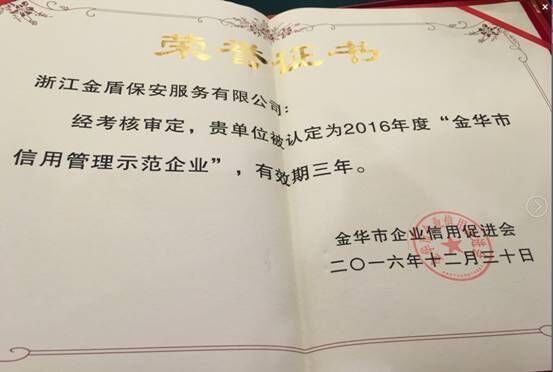 荣誉证书
浙江金盾保安服务有限公司：
经考核审定，贵单位被认定为2016年度“金华市
信用管理示范企业”，有效期三年。
金华市企业信用促进会
二〇一六年十二月三十日